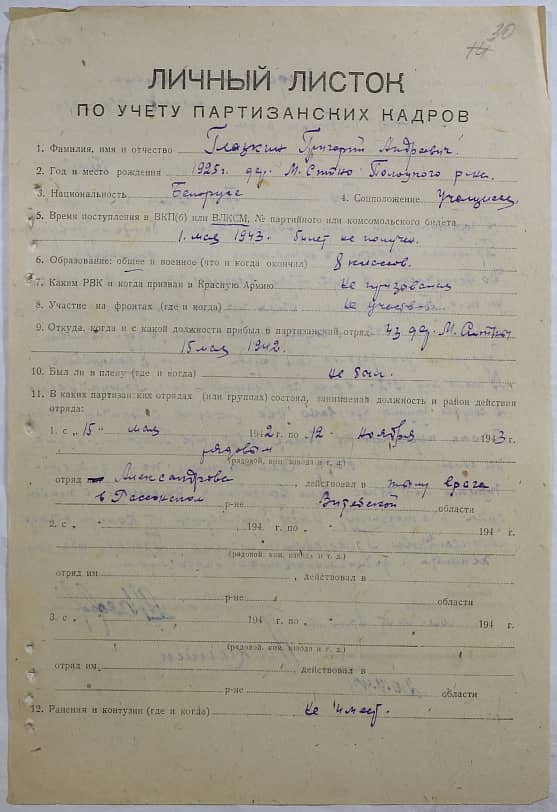 30
14
ЛИЧНЫЙ ЛИСТОК
ПО УЧЕТУ ПАРТИЗАНСКИХ КАДРОВ
1. Фамилия, имя и отчество Глазкин Григорий Андреевич.
2. Год и место рождения 1925г. дер. М. Ситно Полоцкого р-на.
3. Национальность Белорус 4. Соцположение Учащийся
5. Время поступления в ВКП(б) или ВЛКСМ, № партийного или комсомольского билета
1. мая 1943. билет не получен.
6. Образование: общее и военное (что и когда окончил) 8 классов.
7. Каким РВК и когда призван в Красную Армию не призывался
8. Участие на фронтах (где и когда) не участвовал.
9. Откуда, когда и с какой должности прибыл в партизанский отряд из дер. М. Ситно
15 мая 1942.
10. Был ли в плену (где и когда) не был.
11. В каких партизанских отрядах (или группах) состоял, занимаемая должность и район действия
отряда:
1. с „15" мая 1942 г. по „12" ноября 1943 г.
рядовым
(рядовой, ком. взвода и т. д.)
отряд Александрова, действовал в тылу врага
в Россонском р-не Витебской области
2. с „ 194 г. по „ 194 г.
(рядовой, ком. взвода и т. д.)
отряд им. , действовал в
р-не области
3. с „ 194 г. по „ 194 г.
(рядовой, ком. взвода и т. д.)
отряд им. , действовал в
р-не области
12. Ранения и контузии (где и когда) не имеет.